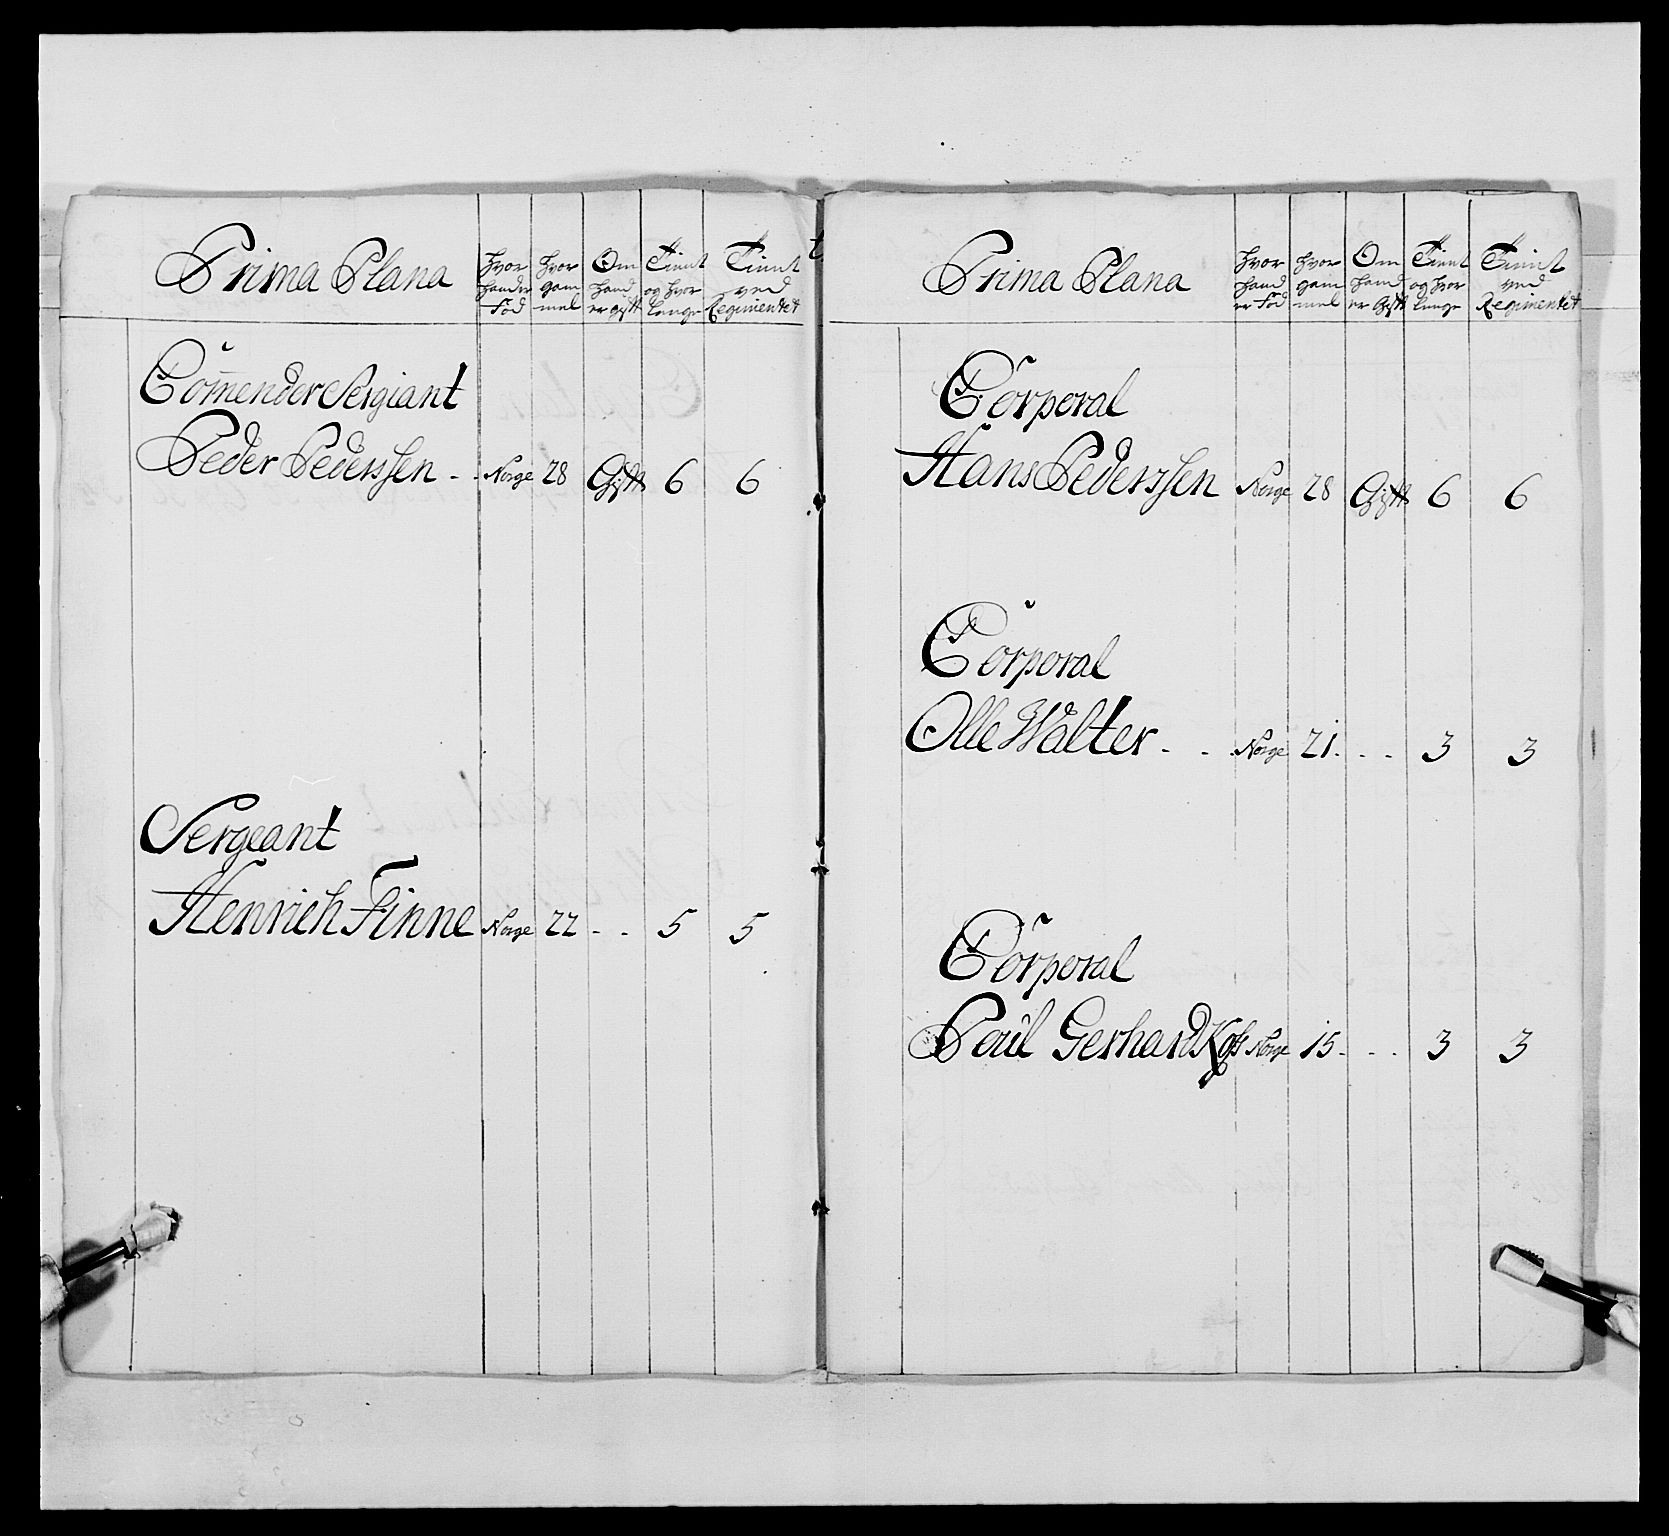 Prima Plana
hvor hander Föd
hvor gam mel
Om hand er gift
Tient og hvor lange
Tient ved Regimentet
Com̄ender Sergiant
Peder Pederssen - - Norge 28 Gift 6 6
Sergeant
Henrich Finne Norge 22 - - 5 5
Prima Plana
hvor hand er Föd
hvor gam mel
Om hand er Gift
Tient og hvor lange
Tient ved Regimentet
Corporal
Hans Pederssen Norge 28 Gift 6 6
Corporal
Olle Walter - - Norge 21 - - - 3 3
Corporal
Poul Gerhard Norge 15 - - - 3 3